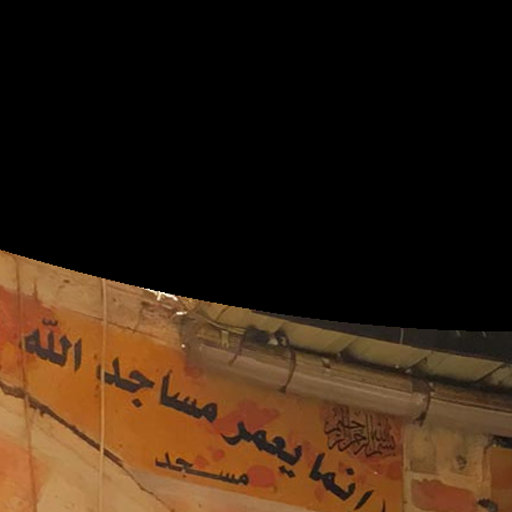 بسم الله الرحمن الرحيم
انما يعمر مساجد الله
مسجد